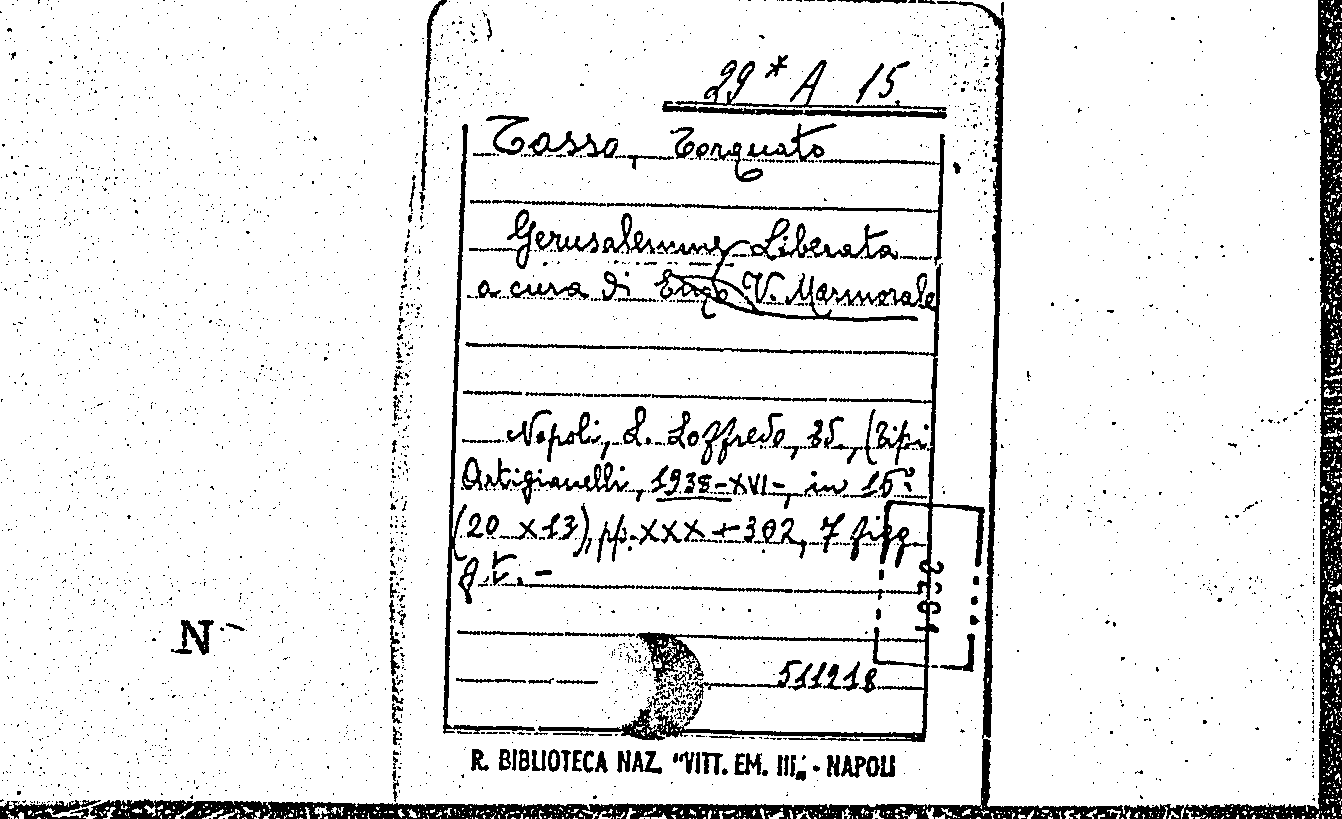 29* A 15.
Tasso, Torquato
Gerusalemme Liberata
a cura di Enzo V. Marmorale
Napoli, L. Loffredo, Ed., (Tipi
Artigianelli, 1938-XVI-, in 16º:
(20 x 13), pp. XXX + 302, 7 figg.
f.t. -
N
511218
R. BIBLIOTECA NAZ. "VITT. EM. III„ - NAPOLI